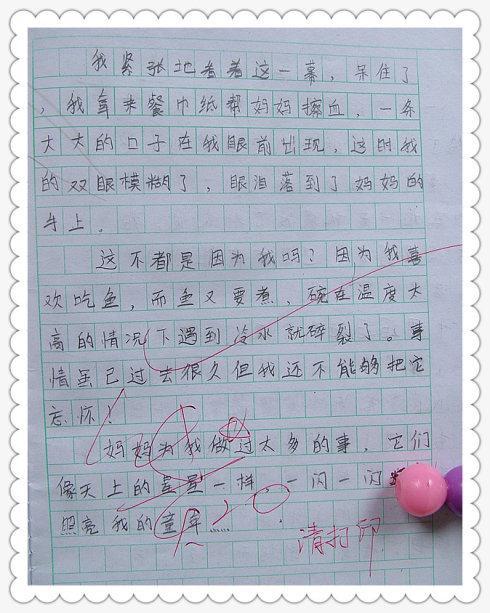 我紧张地看着这一幕，呆住了
，我拿来餐巾纸帮妈妈擦血，一条
大大的口子在我眼前出现，这时我
的双眼模糊了，眼泪落到了妈妈的
手上。
这不都是因为我吗？因为我喜
欢吃鱼，而鱼又要煮，碗在温度太
高的情况下遇到冷水就碎裂了。事
情虽已过去很久但我还不能够把它
忘怀！
妈妈为我做过太多的事，它们
像天上的星星一样，一闪一闪
照亮我的童年……
清打印